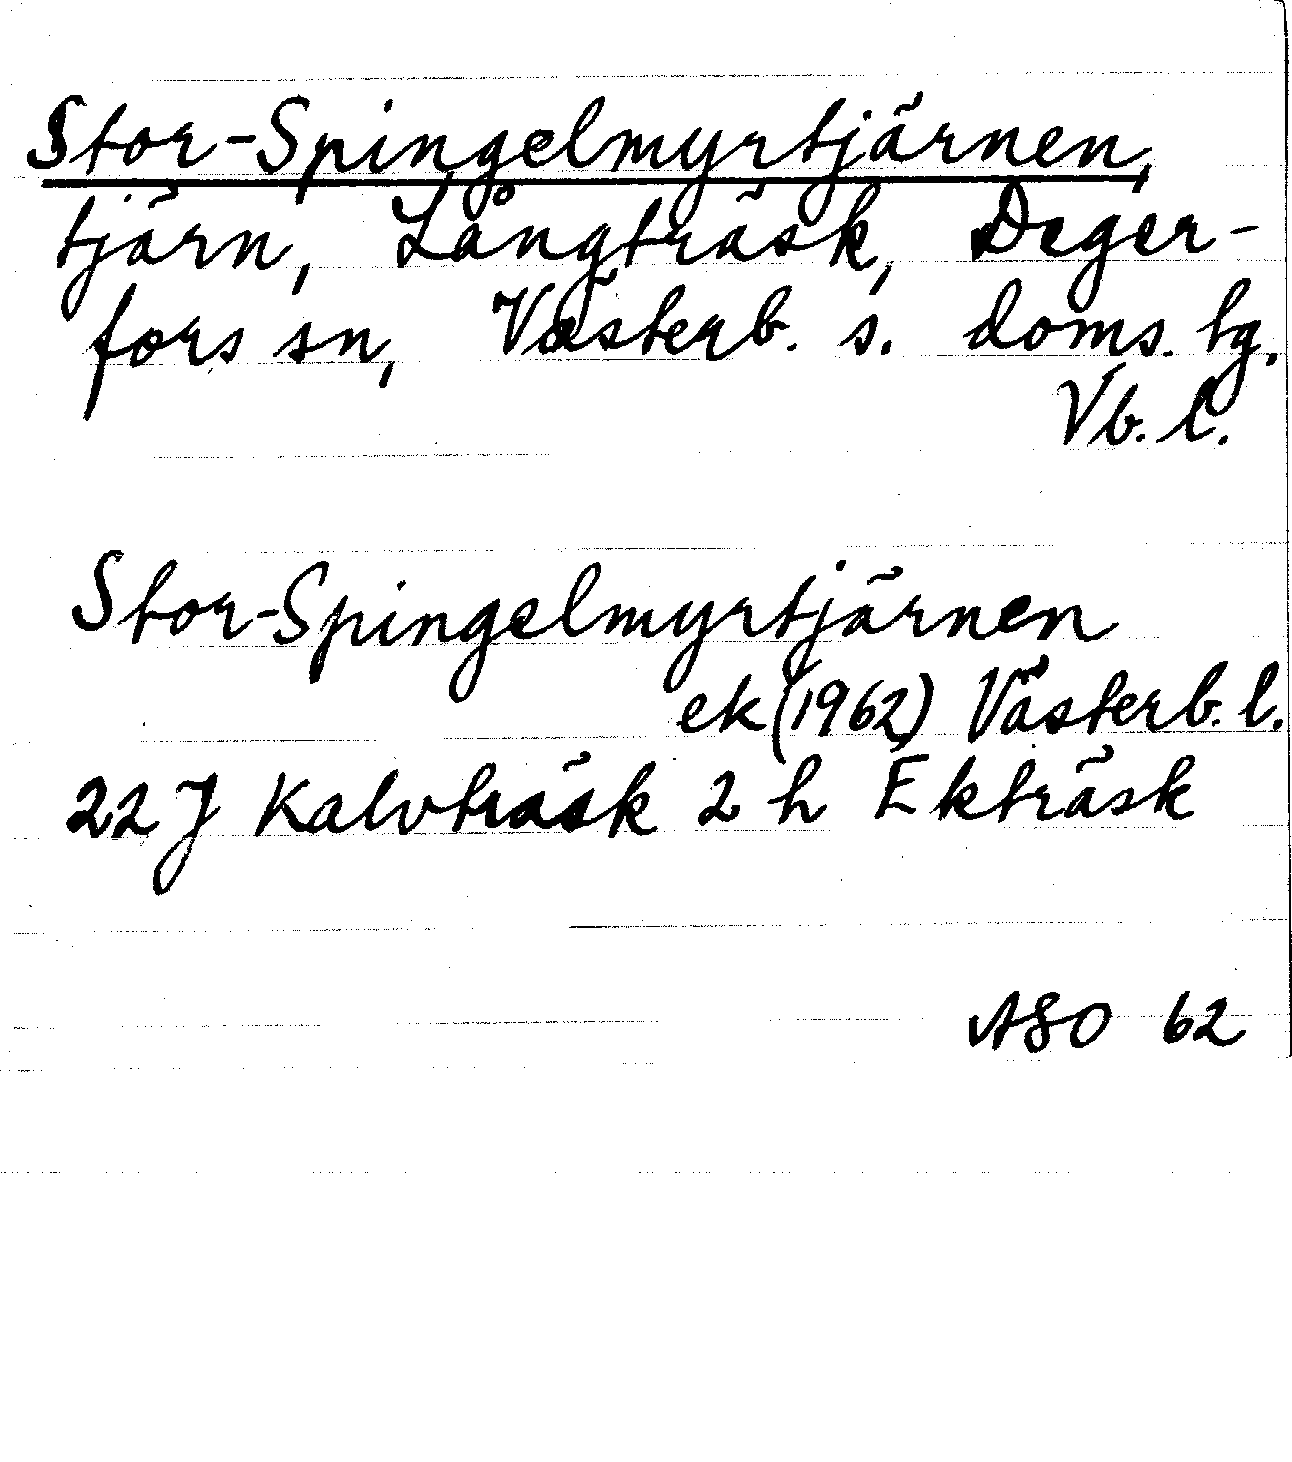 Stor-Spingelmyrtjärnen,
tjärn, Långträsk, Deger-
fors sn, Västerb. s. doms. tg.
Vb. l.
Stor-Spingelmyrtjärnen
ek (1962) Västerb. l.
22 J Kalvträsk 2 h Ekträsk
ASO 62